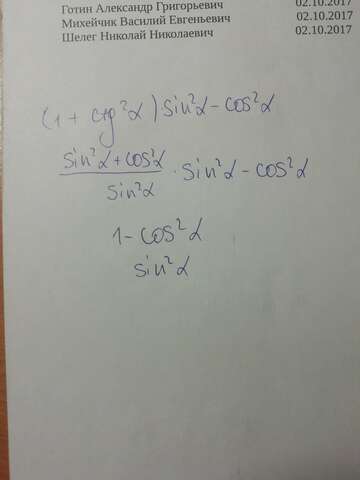 Готин Александр Григорьевич 02.10.2017
Михейчик Василий Евгеньевич 02.10.2017
Шелег Николай Николаевич 02.10.2017
(1 + ctg²α) sin²α - cos²α
sin²α + cos²α / sin²α · sin²α - cos²α
1 - cos²α
sin²α